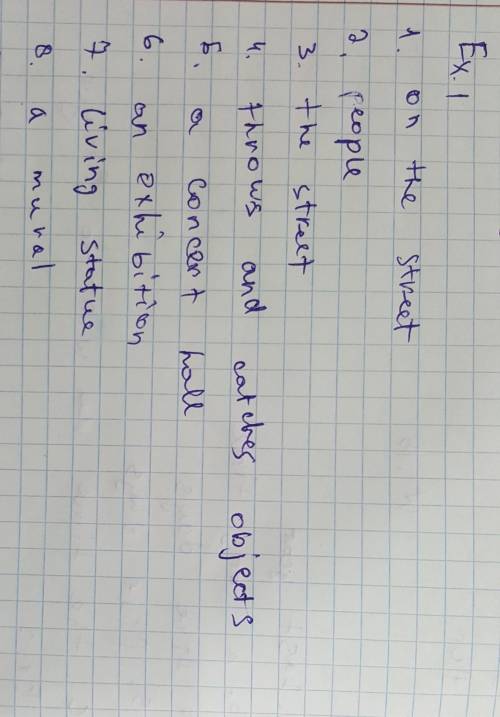 Ex. 1
1. on the street
2. people
3. the street
4. throws and catches objects
5. a concert hall
6. an exhibition
7. living statue
8. a mural